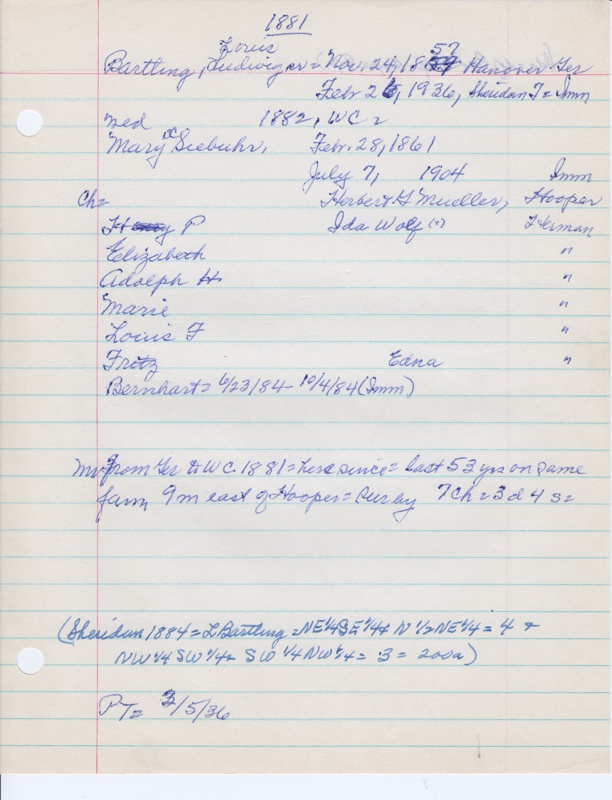 1881
Louis 57
Bartling, Ludwig er = Nov. 24, 18 Hanover Ger
Febr 26, 1936, Sheridan T = Imm
Zed 1882, WC =
Mary Siebuhr, Febr. 28, 1861
July 7, 1904 Imm
Ch = Herbert G Mueller, Hooper
Henry P Ida Wolf (?) Herman
Elizabeth "
Adolph H "
Marie "
Louis F "
Fritz Edna "
Bernhart = 6/23/84 - 10/4/84 (Imm)
from Ger to WC 1881 = here since = last 53 yrs on same
farm 9 m east of Hooper = sur by 7 ch = 3 d 4 s =
(Sheridan 1884 = L Bartling = NE 1/4 SE 1/4 + N 1/2 NE 1/4 = 4 +
NW 1/4 SW 1/4 + SW 1/4 NW 1/4 = 3 = 200a)
PT = 3/5/36